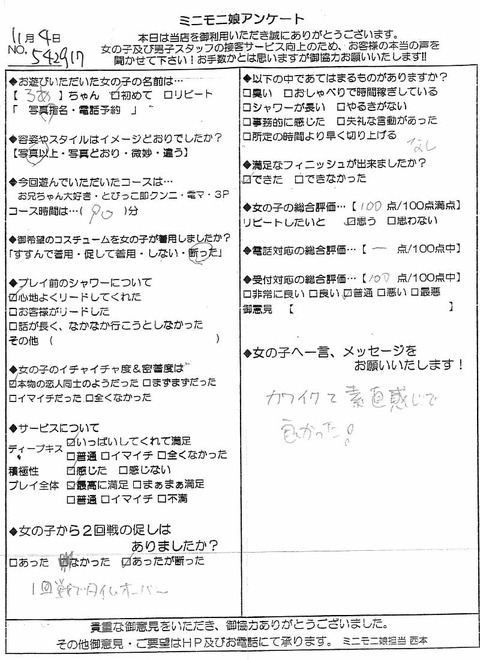 ミニモニ娘アンケート
11月4日
NO. 542917
本日は当店を御利用いただき誠にありがとうございます。
女の子及び男子スタッフの接客サービス向上のため、お客様の本当の声を
聞かせて下さい!お手数かとは思いますが御協力お願いいたします!!
◆お遊びいただいた女の子の名前は…
【 るあ 】ちゃん ☑初めて □リピート
「 写真指名・電話予約 」
◆容姿やスタイルはイメージとおりでしたか?
【写真以上・写真とおり・微妙・違う】
◆今回遊んでいただいたコースは…
お兄ちゃん大好き・とびっこ即クンニ・電マ・3P
コース時間は…( 90 )分
◆御希望のコスチュームを女の子が着用しましたか?
「すすんで着用・促して着用・しない・断った」
◆プレイ前のシャワーについて
☑心地よくリードしてくれた
□お客様がリードした
□話が長く、なかなか行こうとしなかった
その他 ( )
◆女の子のイチャイチャ度&密着度は
☑本物の恋人同士のようだった □まずまずだった
□イマイチだった □全くなかった
◆サービスについて
ディープキス ☑いっぱいしてくれて満足
□普通 □イマイチ □全くなかった
積極性 ☑感じた □感じない
プレイ全体 ☑最高に満足 □まぁまぁ満足
□普通 □イマイチ □不満
◆女の子から2回戦の促しは
ありましたか?
□あった □なかった ☑あったが断った
1回戦でタイムオーバー
◆以下の中であてはまるものがありますか?
□臭い □おしゃべりで時間稼ぎしている
□シャワーが長い □やるきがない
□事務的に感じた □失礼な言動があった
□所定の時間より早く切り上げる
なし
◆満足なフィニッシュが出来ましたか?
☑できた □できなかった
◆女の子の総合評価…【 100 点/100点満点】
リピートしたいと ☑思う □思わない
◆電話対応の総合評価…【 ー 点/100点中】
◆受付対応の総合評価…【 100 点/100点中】
□非常に良い □良い ☑普通 □悪い □最悪
御意見 【 】
◆女の子へ一言、メッセージを
お願いいたします!
カワイクて素直感じで
良かった!
貴重な御意見をいただき、御協力ありがとうございました。
その他御意見・ご要望はHP及びお電話にて承ります。 ミニモニ娘担当 西本